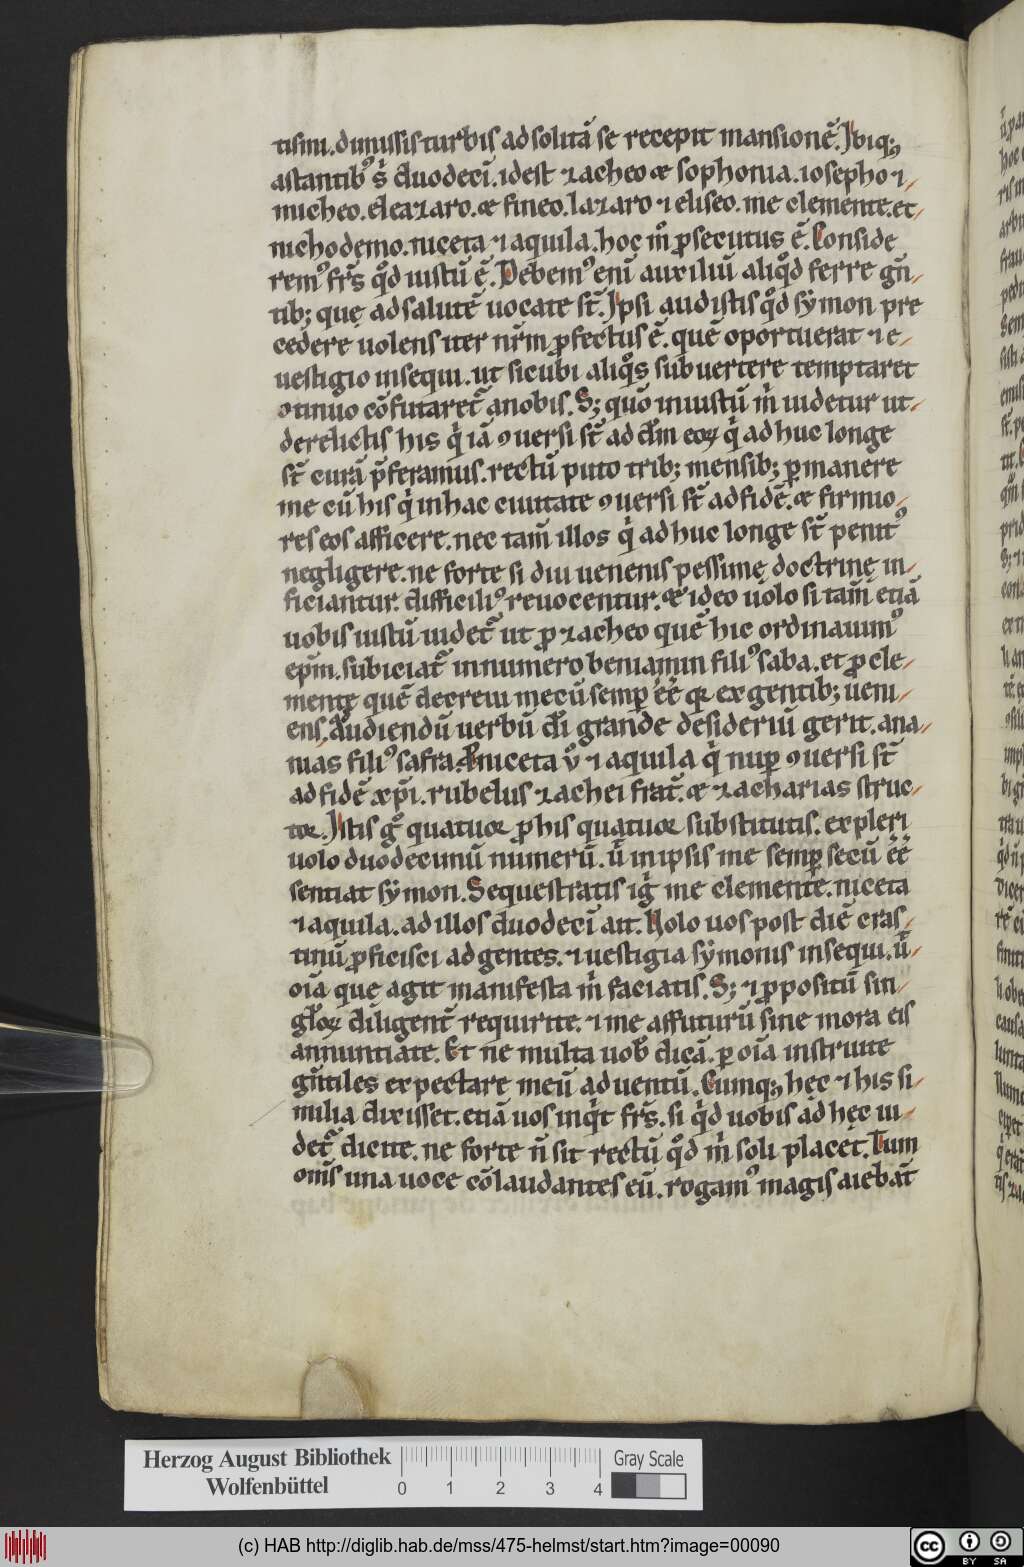 tismi. dimissis turbis ad solitā se recepit mansionē. Ibiq;
astantib᷒ s̄ duodeci̅. idest zacheo & sophonia. iosepho ⁊
micheo. eleazaro. & fineo. lazaro ⁊ eliseo. me clemente. et
nichodemo. niceta ⁊ aquila. hoc m̊ ꝓsecutus ē. Conside
rem᷒ fr̄s qd̊ iustū ē. Debem᷒ eni̅ auxiliū aliqd̊ ferre gn̄
tib; quę ad salutē uocate st̄. Ipsi audistis qd̊ sẏmon pre
cedere uolens iter nr̄m ꝓfectus ē. quē oportuerat ⁊ e
uestigio insequi. ut sicubi aliqͦs subuertere temptaret
ꝯtinuo cōfutaret̃ anobis. S; quō iniustū m̍ uidetur ut
derelictis his q̍ iā ꝯuersi st̄ ad dm̄ eoꝝ q̍ ad huc longe
st̄ curā p̄feramus. rectū puto trib; mensib; ꝑmanere
me cū his q̍ in hac ciuitate ꝯuersi st̄ ad fidē. & firmio
res eos afficere. nec tam̄ illos q̍ ad huc longe st̄ penit᷒
negligere. ne forte si diu uenenis pessimę doctrinę in
ficiantur. difficili᷒ reuocentur. & ideo uolo si tam̄ etiā
uobis iustū uidet̃ ut ꝓ zacheo quē hic ordinauim᷒
ep̄m. subiciat̃ in numero beniamin fili᷒ saba. et ꝓ cle
mentę quē decreui mecū semꝑ ēē qr ex gentib; ueni
ens. Audiendū uerbū di̅ grande desideriū gerit. ana
nias fili᷒ safra. ꝓ niceta ů ⁊ aquila q̍ nuꝑ ꝯuersi st̄
ad fidē xp̄i. rubelus zachei frat̃. & zacharias struc
tor. Istis gͦ quatuor ꝓ his quatuor substitutis. expleri
uolo duodecimū numerū. u̅ in ipsis me semꝑ secū ēē
sentiat sẏmon. Sequestratis ig̍ me clemente. niceta
⁊ aquila. ad illos duodeci̅ ait. Uolo uos post diē cras
tinū ꝓficisci ad gentes. ⁊ uestigia sẏmonis insequi. u̅
oīa quę agit manifesta m̍ faciatis. S; ⁊ ꝓpositū sin
gl̄oꝝ diligent̃ requirite. ⁊ me affuturū sine mora eis
annuntiate. Et ne multa uob̄ dicā. ꝑ oīa instruite
gn̄tiles expectare meū aduentū. Cumq; hec ⁊ his si
milia dixisset. etiā uos inq̍t fr̄s. si q̍d uobis ad hec ui
det̃ dicite. ne forte n̄ sit rectū qd̊ m̍ soli placet. Tum
om̄s una uoce cōlaudantes eū. rogam᷒ magis aiebat̄
Herzog August Bibliothek
Wolfenbüttel
0 1 2 3 4
Gray Scale
(c) HAB http://diglib.hab.de/mss/475-helmst/start.htm?image=00090
cc BY SA